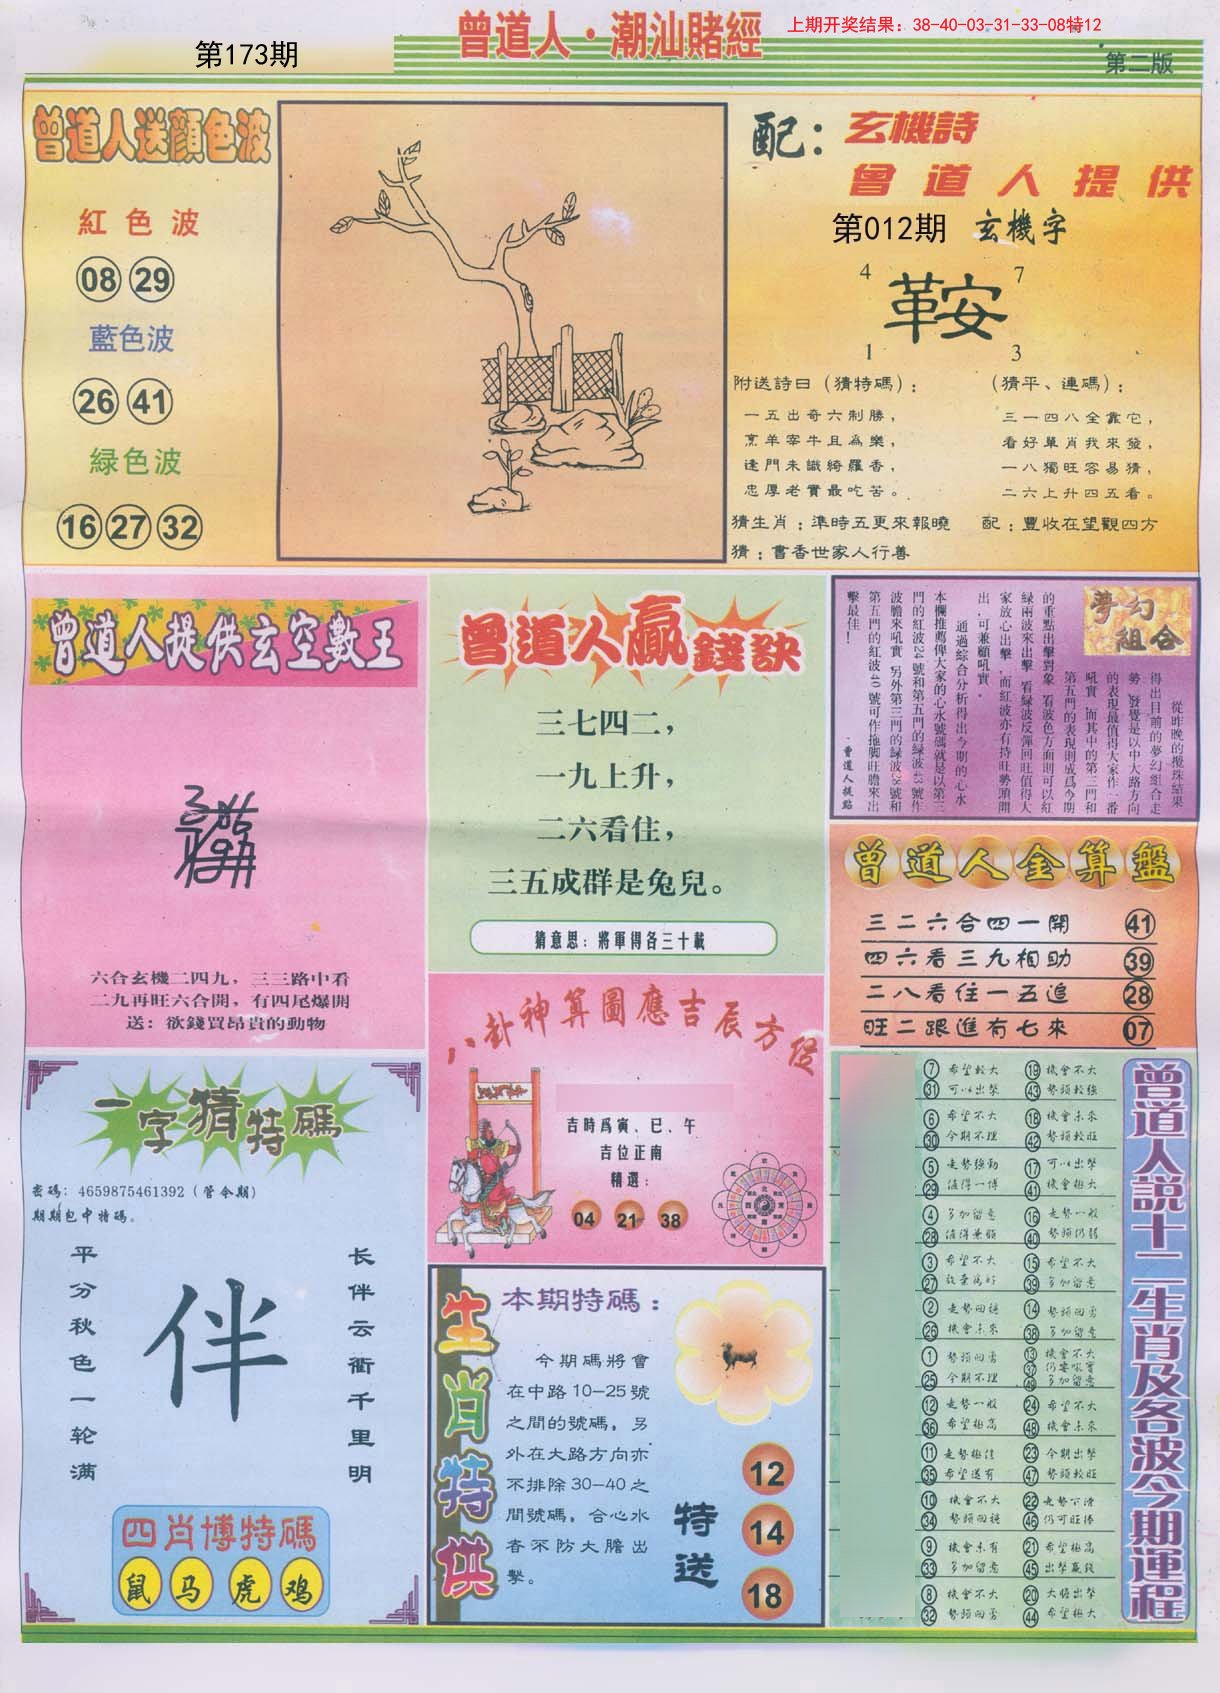 曾道人·潮汕賭經
上期开奖结果：38-40-03-31-33-08特12
第173期
第二版
曾道人送顏色波
紅色波
08 29
藍色波
26 41
緑色波
16 27 32
配：玄機詩
曾道人提供
第012期 玄機字
4 7
鞍
1 3
附送詩曰（猜特碼）：
一五出奇六制勝，
烹羊宰牛且為樂，
逢門未識綺羅香，
忠厚老實最吃苦。
（猜平、連碼）：
三一四八全靠它，
看好單肖我來發，
一八獨旺容易猜，
二六上升四五看。
猜生肖：準時五更來報曉
配：豐收在望觀四方
猜：書香世家人行善
曾道人提供玄空數王
六合玄機二四九，三三路中看
二九再旺六合開，有四尾爆開
送：欲錢買昂貴的動物
曾道人贏錢訣
三七四二，
一九上升，
二六看住，
三五成群是兔兒。
猜意思：將軍得各三十載
夢幻組合
從昨晚的攪珠結果
得出目前的夢幻組合走
勢，發覺是以中大路方向
的表現最值得大家作一番
吼實，而其中的第三門和
第五門的表現則成爲今期
的重點出擊對象，看波色方面則可以紅
緑兩波來出擊，看緑波反彈回旺值得大
家放心出擊，而紅波亦有持旺勢頭開
出，可兼顧吼實。
通過綜合分析得出今期的心水
本欄推薦俾大家的心水號碼就是以第三
門的紅波24號和第五門的緑波43號作
波膽來吼實，另外第三門的緑波28號和
第五門的紅波40號可作拖脚旺膽來出
擊最佳！
·曾道人提點
曾道人金算盤
三二六合四一開 41
四六看三九相助 39
二八看住一五追 28
旺二跟進有七來 07
八卦神算圖應吉辰方位
吉時爲寅、巳、午
吉位正南
精選：
04 21 38
一字猜特碼
密碼：4659875461392（管今期）
期期包中特碼。
平分秋色一轮满
伴
长伴云衢千里明
四肖博特碼
鼠 马 虎 鸡
生肖特供
本期特碼：
今期碼將會
在中路10-25號
之間的號碼，另
外在大路方向亦
不排除30-40之
間號碼，合心水
者不防大膽出
擊。
特送
12
14
18
曾道人説十二生肖及各波今期運程
7 希望較大 19 機會不大
31 可以出擊 43 勢頭較強
6 希望不大 18 機會未來
30 今期不理 42 勢頭較旺
5 走勢強勁 17 可以出擊
29 值得一博 41 機會極大
4 多加留意 16 走勢一般
28 值得兼顧 40 勢頭仍弱
3 希望不大 15 希望不大
27 39 多加留意
2 走勢回穩 14 勢頭回勇
26 機會未來 38 多加留意
1 勢頭回勇 13 機會不大
37 仍要吼實
25 今期不理 49 多加留意
12 走勢一般 24 希望不大
36 希望極高 48 機會未來
11 走勢極佳 23 今期出擊
35 希望還有 47 勢頭較旺
10 機會不大 22 走勢下滑
34 勢頭回穩 46 仍可旺捧
9 機會未有 21 希望極高
33 多加留意 45 出擊贏錢
8 機會不大 20 大膽出擊
32 勢頭回勇 44 希望極大